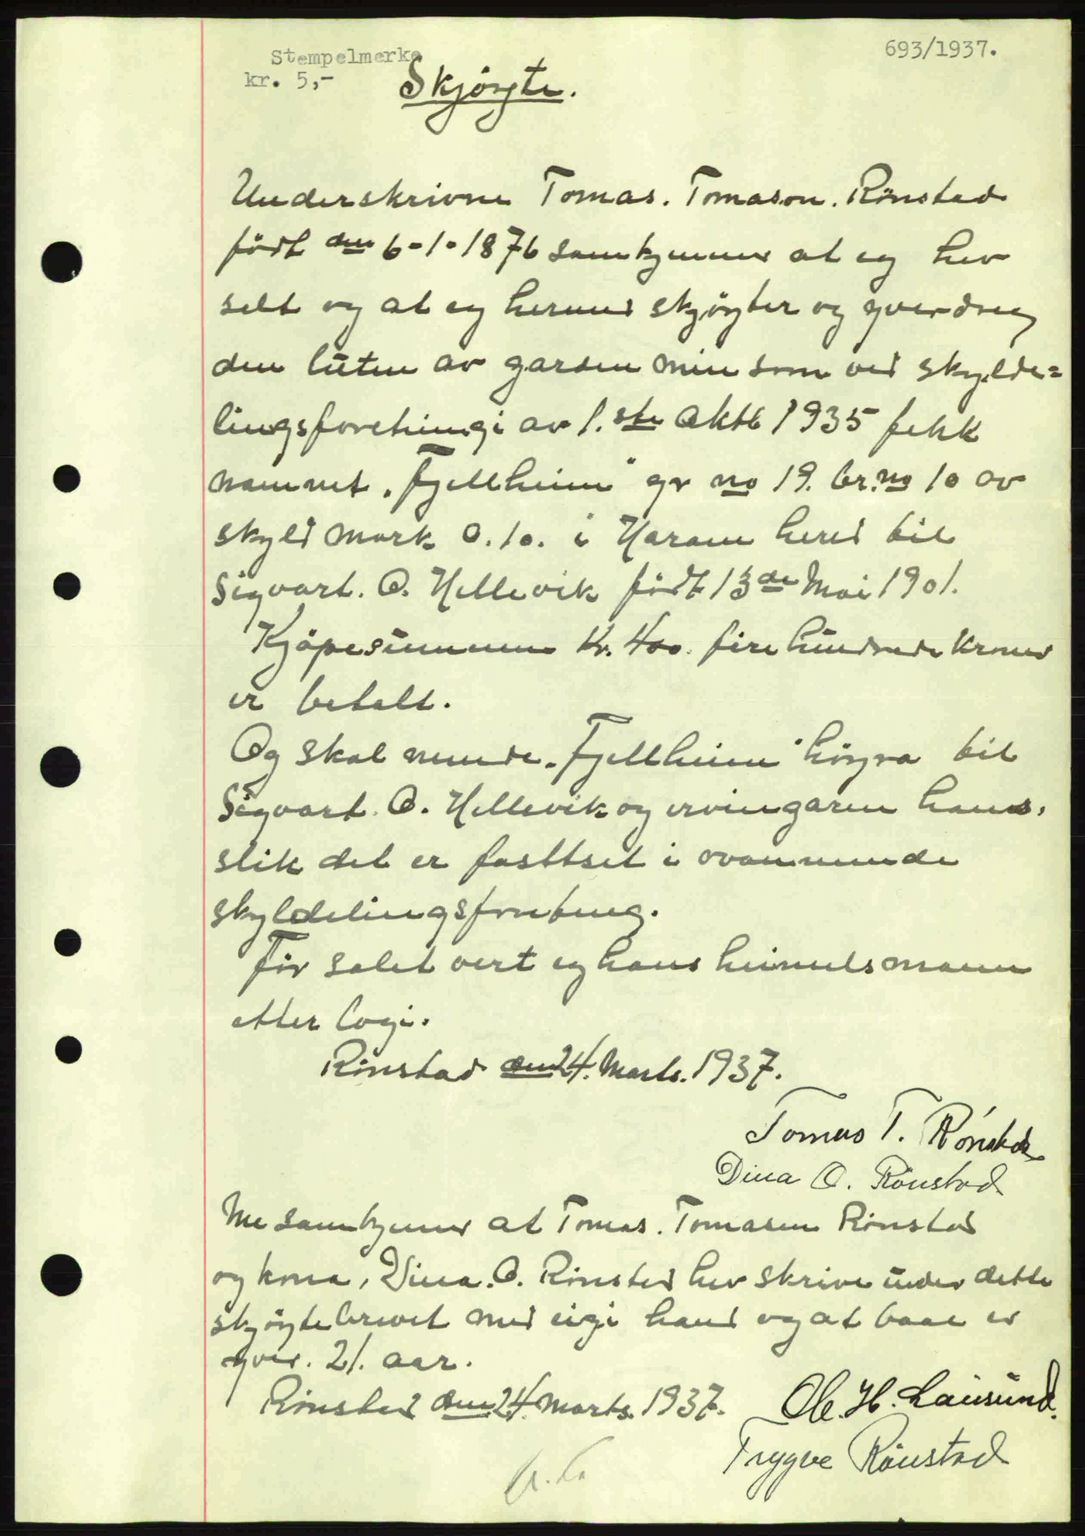 Stempelmerke
kr. 5,-
693/1937.
Skjøyte.
Underskrivne Tomas. Tomason. Rønstad
född den 6-1-1876 samkjenner at eg hev
selt og at eg hermed skjøyter og yverdreg
den luten av garden min som ved skylde=
lingsforetningi av 1.ste Oktb 1935 fekk
namnet "Fjellheim" gr no 19. br.no 10 av
skyld mark 0.10. i Haram hered til
Sigvart. O. Hellevik född 13de Mai 1901.
Kjøpesummen Kr. 400. fire hundrede kroner
er betalt.
Og skal nemnde "Fjellheim" høyra til
Sigvart. O. Hellevik og ervingaren hans,
slik det er fasttset i ovannemnde
skyldelingsforretning.
För salet vert eg hans heimelsmann
etter logi.
Rønstad den 24. Marts. 1937.
Tomas T. Rønstad
Dina O. Rønstad
Me samkjenner at Tomas. Tomasen Rønstad
og kona, Dina. O. Rønstad hev skrive under dette
skjøytebrevet med eigi hand og at baae er
yver. 21. aar.
Rønstad den 24. Marts. 1937.
Ole. H. Lausund.
Trygve Rønstad